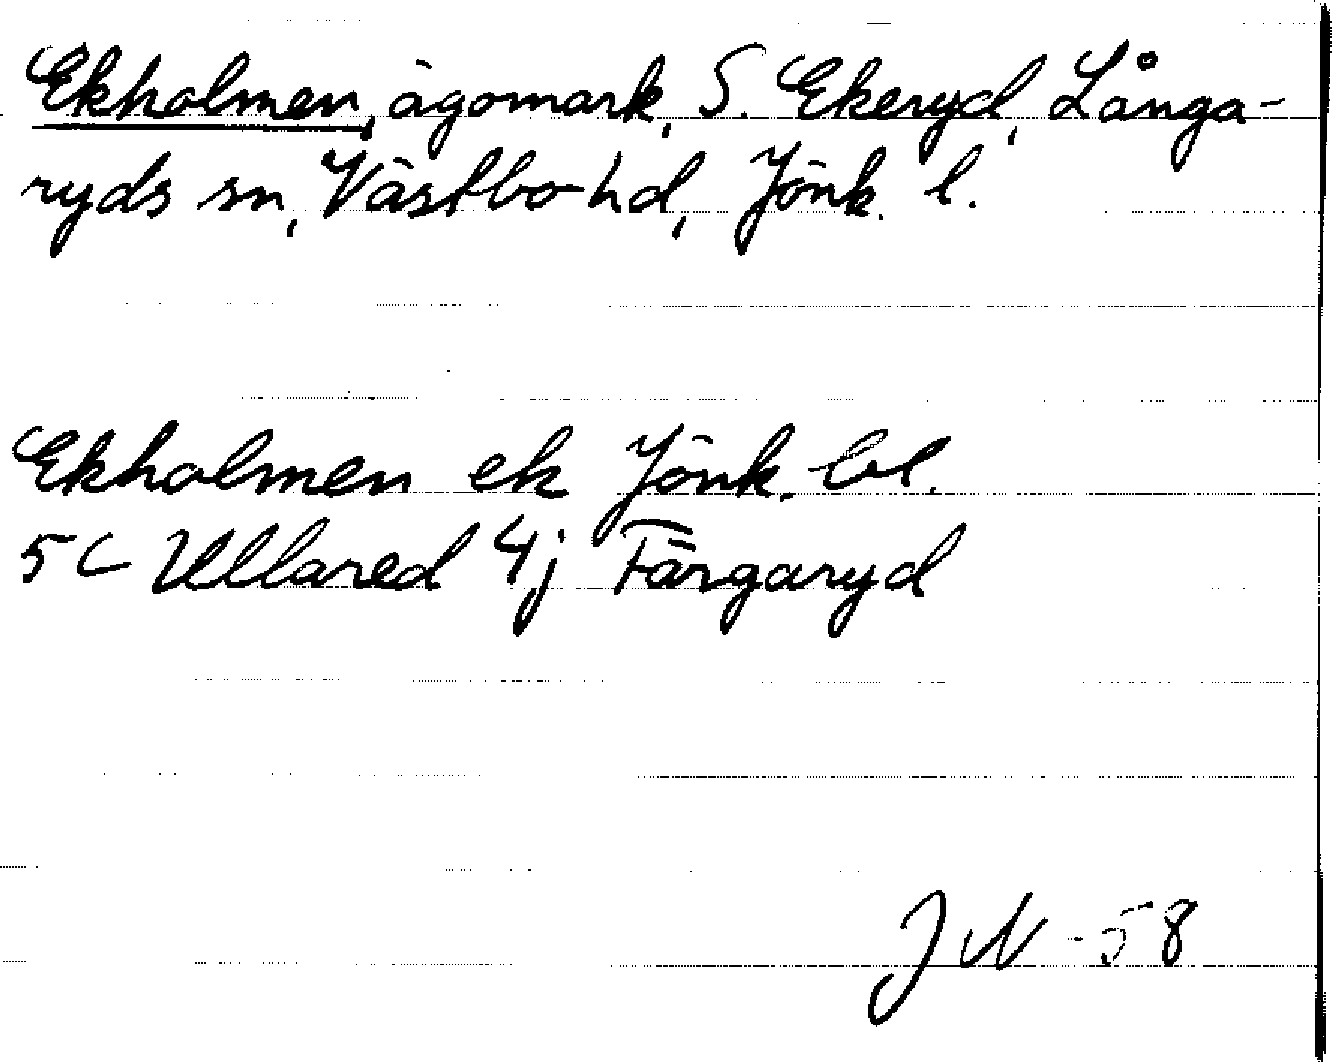 Ekholmen, ägomark, S. Ekeryd, Långa-
ryds sn, Västbo hd, Jönk. l.
Ekholmen ek Jönk. bl.
5C Ullared 4j Färgaryd
JN -58